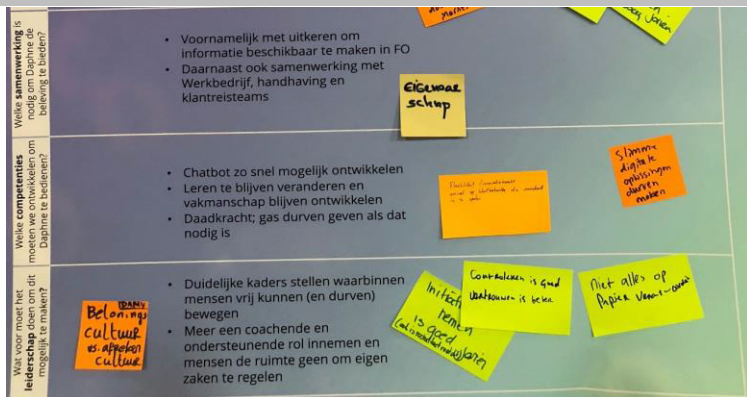 Welke samenwerking is
nodig om Daphne de
beleving te bieden?
• Voornamelijk met uitkeren om
informatie beschikbaar te maken in FO
• Daarnaast ook samenwerking met
Werkbedrijf, handhaving en
klantreisteams
Eigenaar
schap
Welke competenties
moeten we ontwikkelen om
Daphne te bedienen?
• Chatbot zo snel mogelijk ontwikkelen
• Leren te blijven veranderen en
vakmanschap blijven ontwikkelen
• Daadkracht; gas durven geven als dat
nodig is
Slimme
digitale
oplossingen
durven
maken
Wat voor moet het
leiderschap doen om dit
mogelijk te maken?
Belonings
cultuur
vs. afreken
cultuur
• Duidelijke kaders stellen waarbinnen
mensen vrij kunnen (en durven)
bewegen
• Meer een coachende en
ondersteunende rol innemen en
mensen de ruimte geen om eigen
zaken te regelen
nemen
is goed
Controleren is goed
vertrouwen is beter
Niet alles op
papier